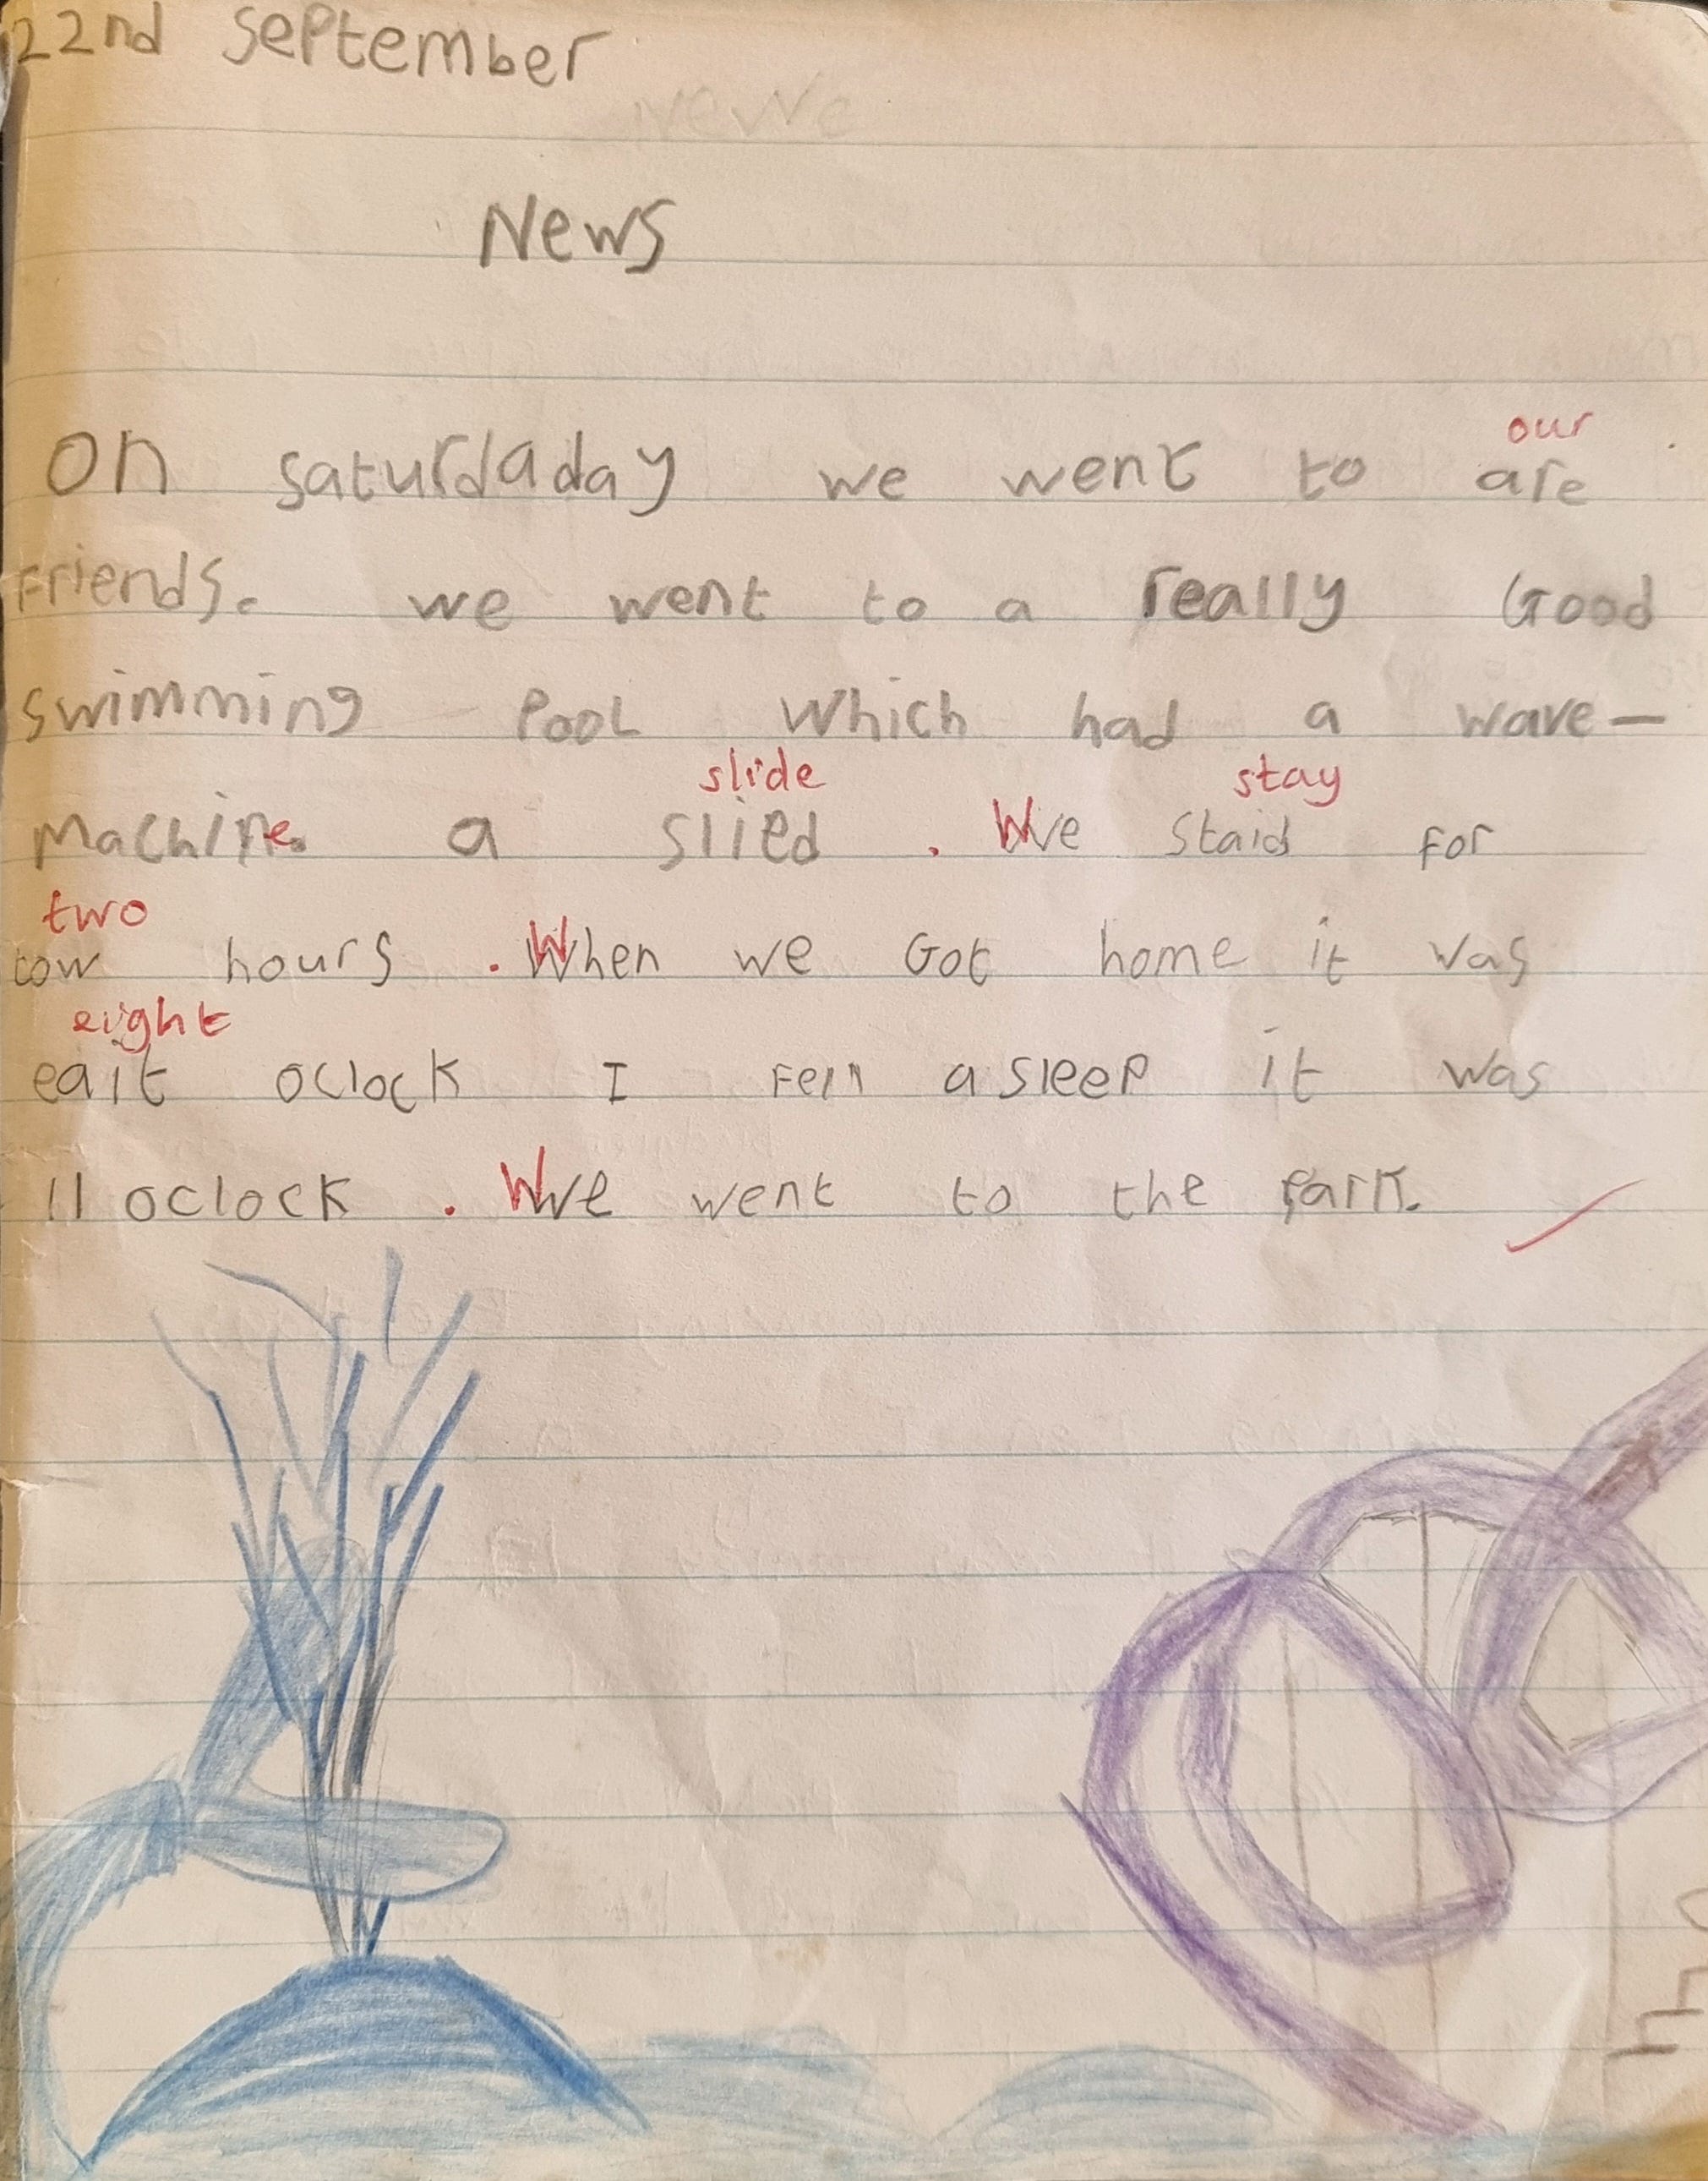 22nd September
News
our
on saturdaday we went to are
Friends. we went to a really Good
swimming Pool which had a wave-
slide stay
machine. a slied . We staid for
two
tow hours . When we Got home it was
eight
eait oclock I Fell asleep it was
11 oclock . We went to the park.